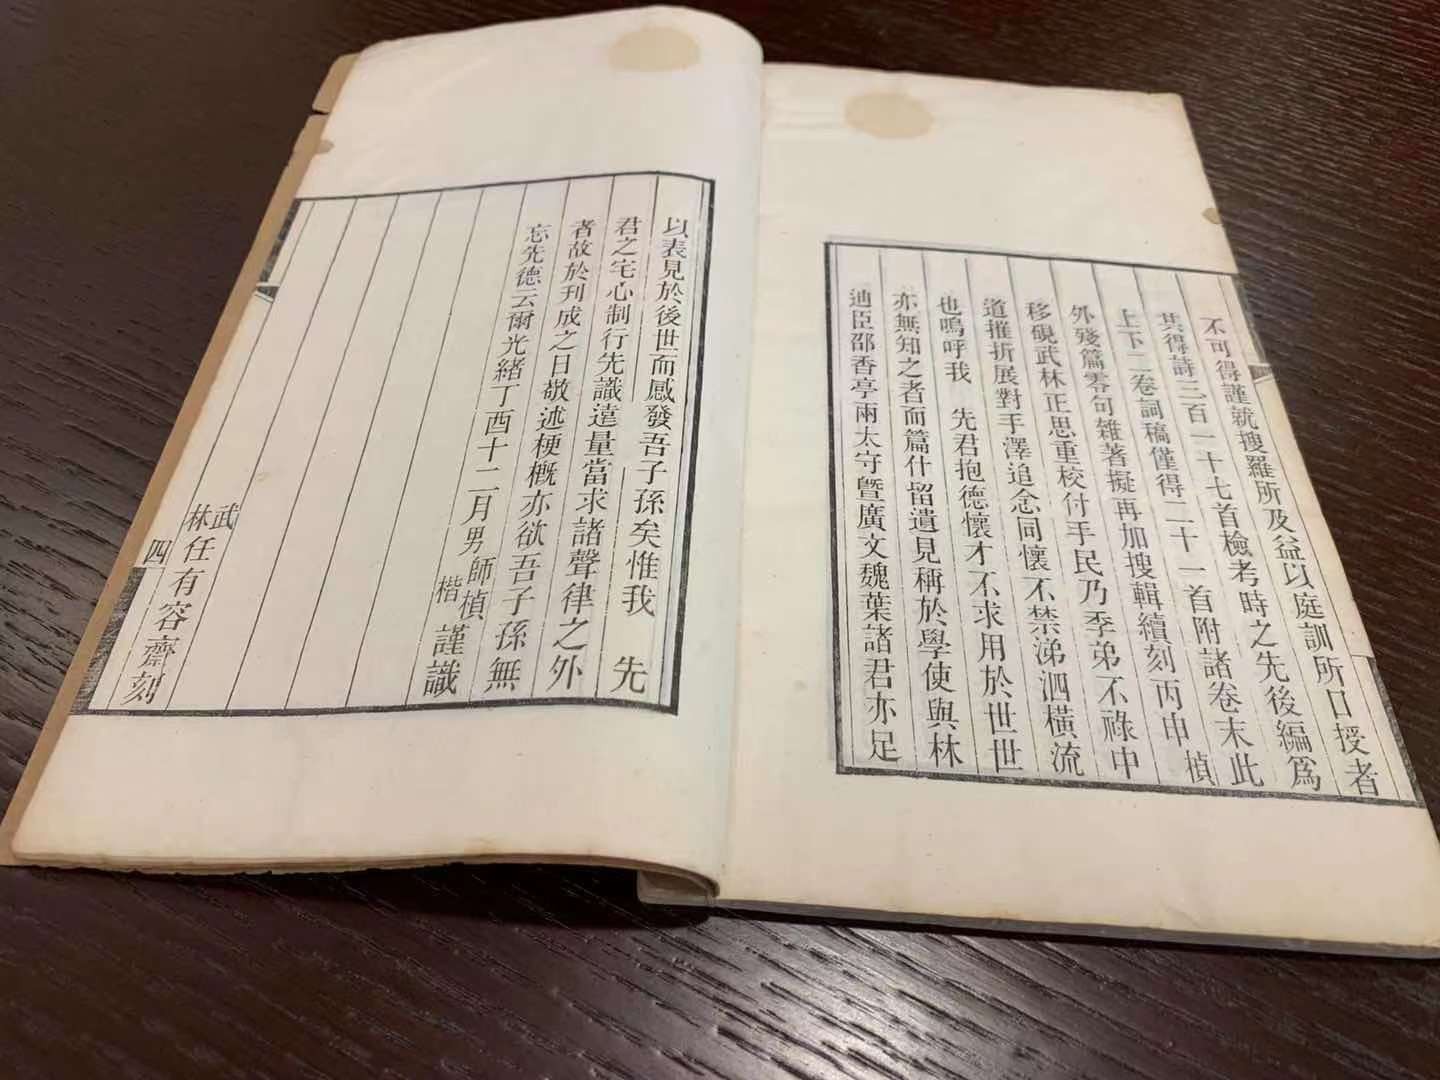 不可得謹就搜羅所及益以庭訓所口授者
共得詩三百一十七首檢考時之先後編爲
上下二卷詞稿僅得二十一首附諸卷末此
外殘篇零句雜著擬再加搜輯續刻丙申楨
移硯武林正思重校付手民乃季弟不祿中
道摧折展對手澤追念同懷不禁涕泗橫流
也嗚呼我　先君抱德懷才不求用於世世
亦無知之者而篇什留遺見稱於學使與林
迪臣邵香亭兩太守曁廣文魏葉諸君亦足
以表見於後世而感發吾子孫矣惟我　先
君之宅心制行先識達量當求諸聲律之外
者故於刋成之日敬述梗概亦欲吾子孫無
忘先德云爾光緒丁酉十二月男師楨楷謹識
四
武林任有容齋刻